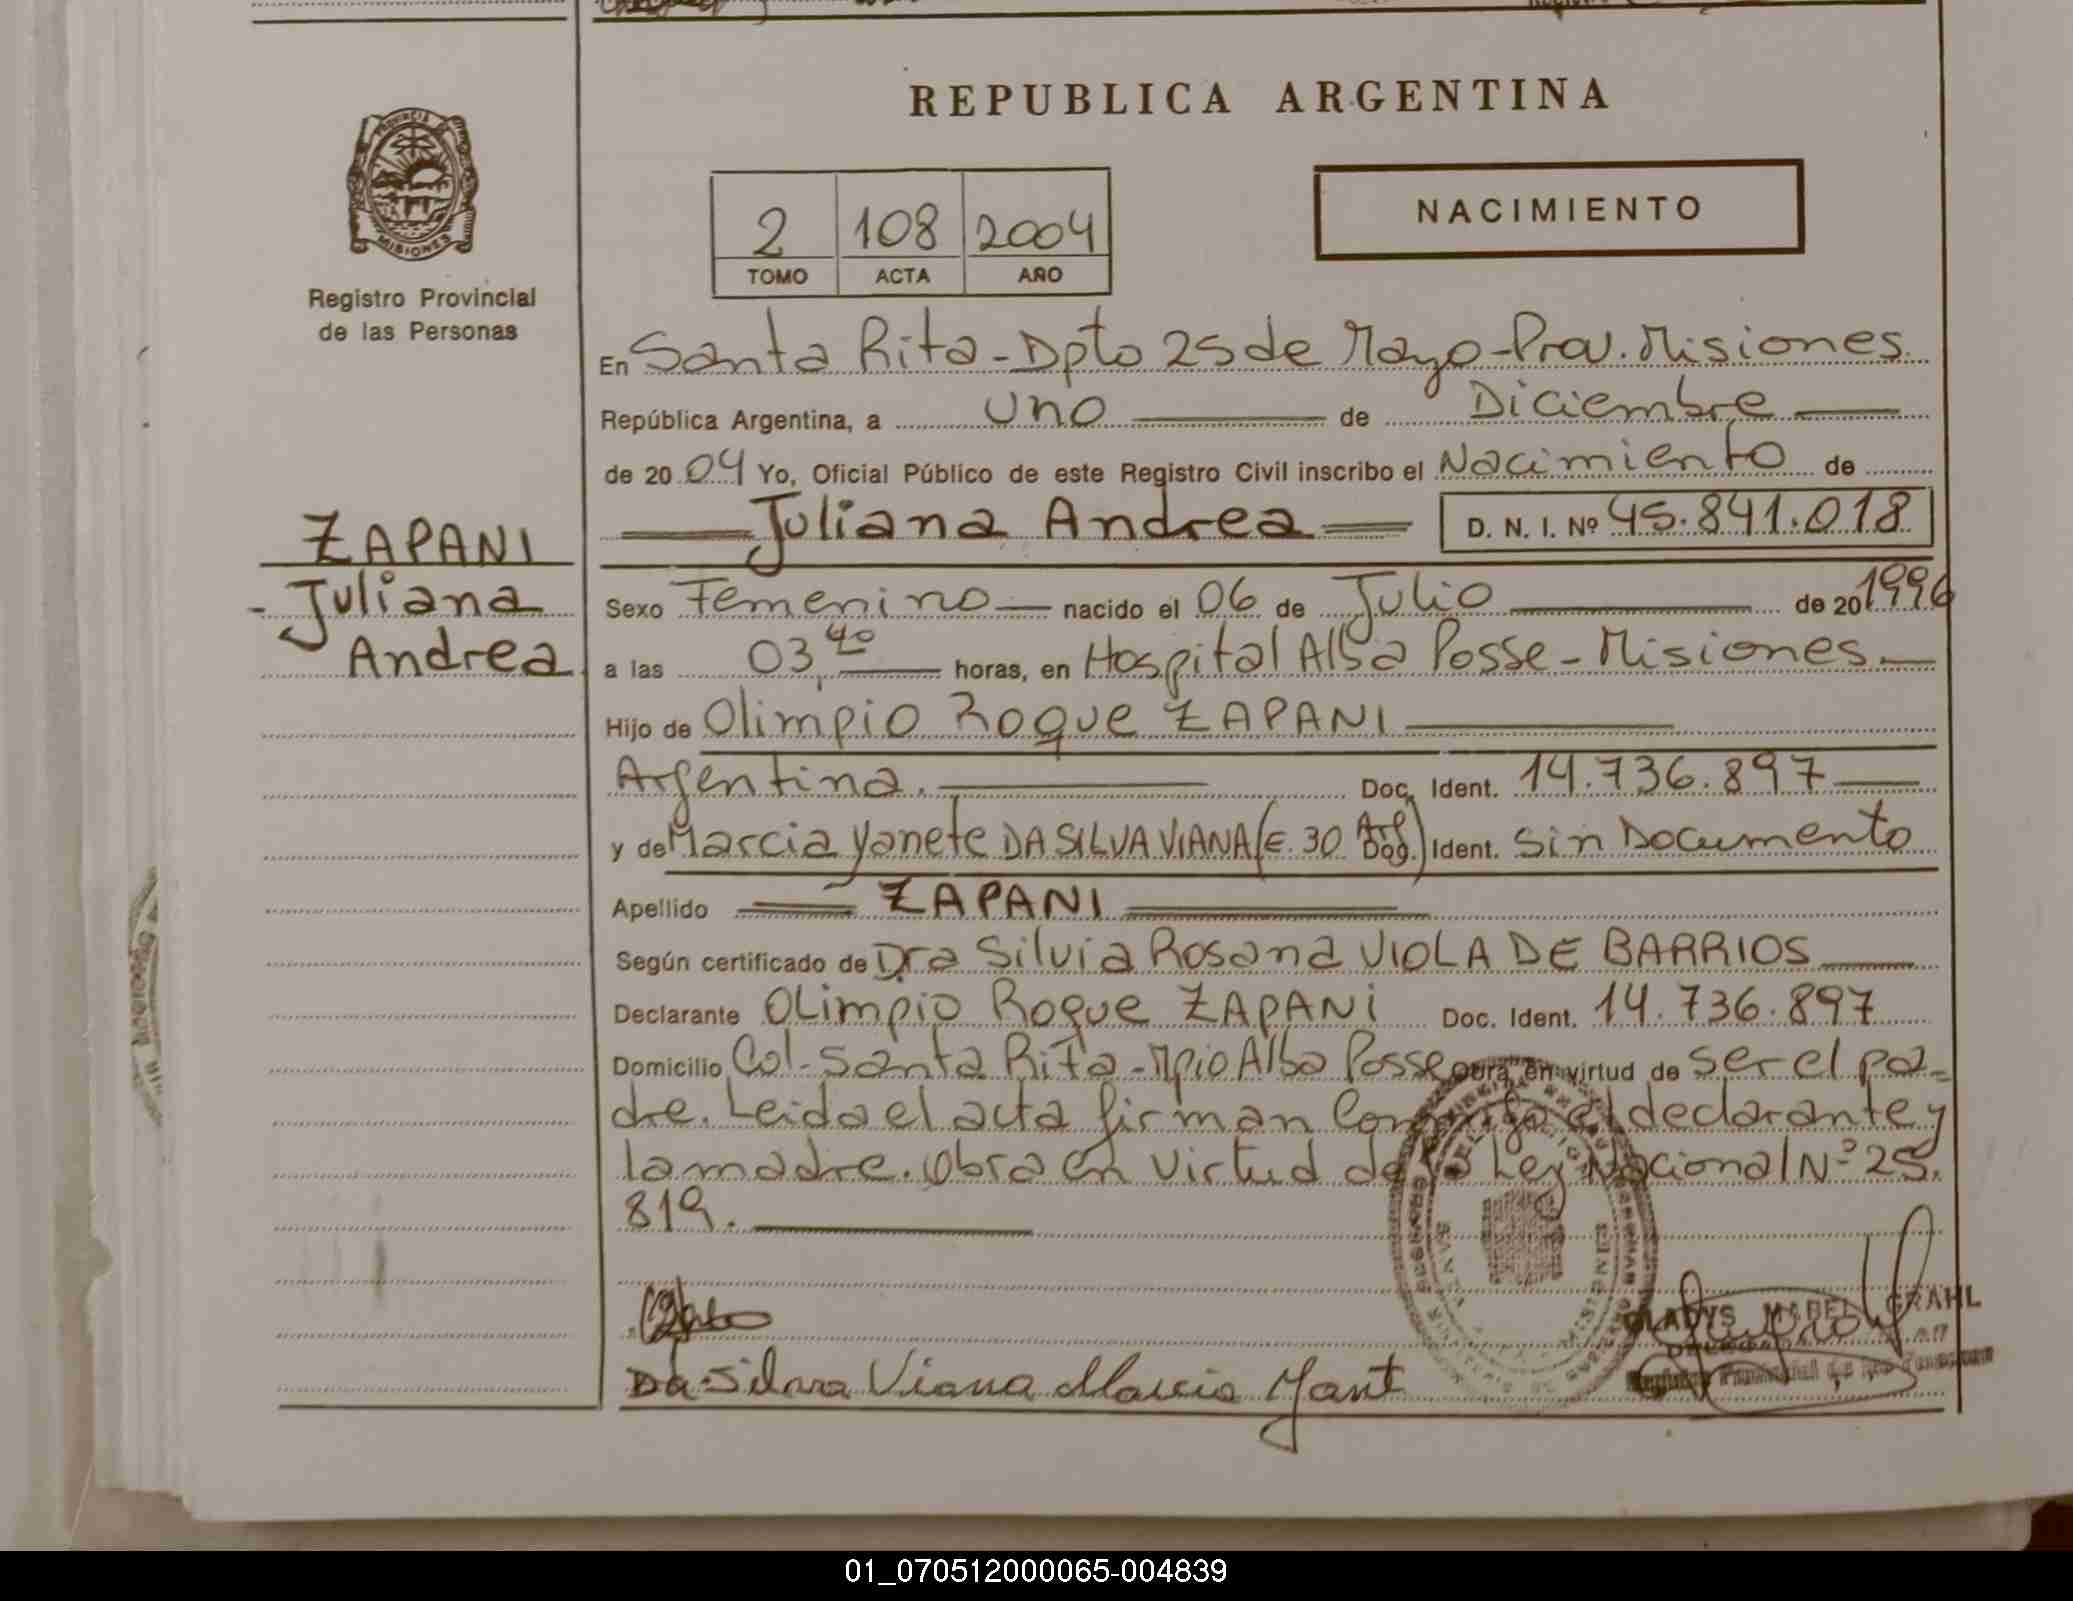 REPUBLICA ARGENTINA
PROVINCIA DE
MISIONES
Registro Provincial
de las Personas
2 108 2004
TOMO ACTA AÑO
NACIMIENTO
En Santa Rita - Dpto 25 de Mayo - Prov. Misiones
República Argentina, a uno de Diciembre
de 20 04 Yo, Oficial Público de este Registro Civil inscribo el Nacimiento de
Juliana Andrea D. N. I. Nº 45.841.018
ZAPANI
Juliana
Andrea
Sexo Femenino nacido el 06 de Julio de 20 1996
a las 03,40 horas, en Hospital Alba Posse - Misiones
Hijo de Olimpio Roque ZAPANI
Argentina. Doc. Ident. 14.736.897
y de Marcia Yanete DA SILVA VIANA (E. 30 Arg) Ident. Sin Documento
Apellido ZAPANI
Según certificado de Dra Silvia Rosana VIOLA DE BARRIOS
Declarante OLimpio Roque ZAPANi Doc. Ident. 14.736.897
Domicilio Col- Santa Rita - Mpio Alba Posse obra en virtud de ser el pa-
dre. Leida el acta firman Conmigo el declarante y
la madre. Obra en virtud de la Ley Nacional Nº 25.
819.
Da Silva Viana Marcia Yant
GLADYS MABEL GRAHL
01_070512000065-004839